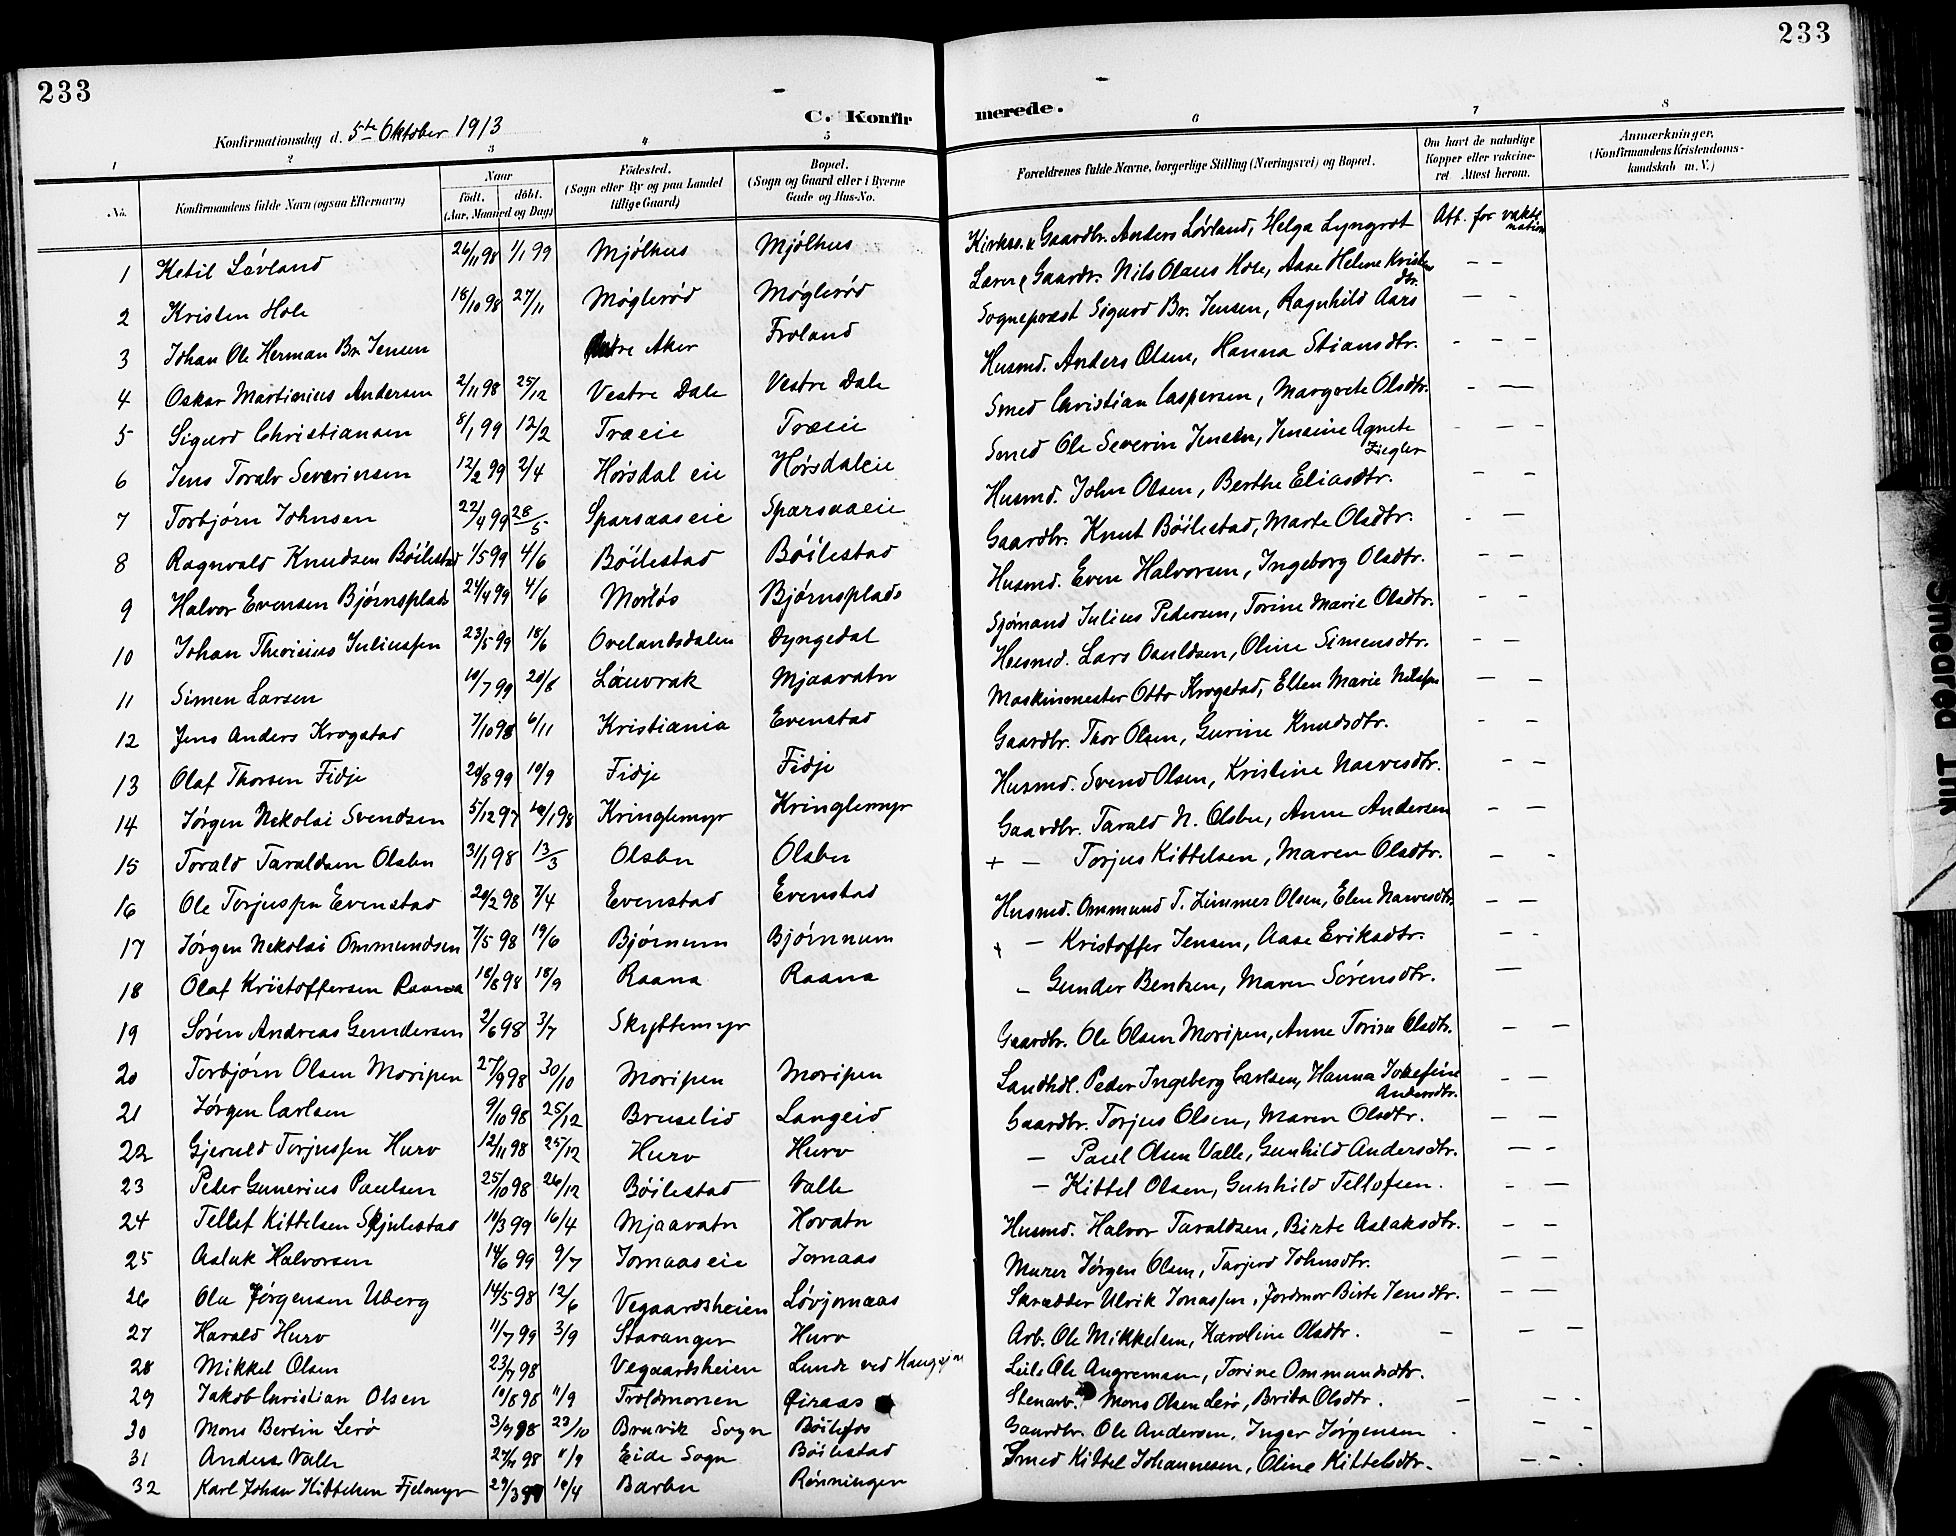 233
233
C. Konfirmerede.
Konfirmationsdag d. 5te Oktober 1913
1 2 3 4 5 6 7 8
No.
Konfirmandens fulde Navn (ogsaa Efternavn)
Naar
født. døbt.
(Aar, Maaned og Dag)
Fødested.
(Sogn eller By og paa Landet tillige Gaard)
Bopæl.
(Sogn og Gaard eller i Byerne Gade og Hus-No.
Forældrenes fulde Navne, borgerlige Stilling (Næringsvei) og Bopæl.
Om havt de naturlige Kopper eller vakcineret. Attest herom.
Anmærkninger,
(Konfirmandens Kristendomskundskab m. V.)
1 Ketil Løvland 26/11 98 1/1 99 Mjølhus Mjølhus Kirkes. & Gaardbr. Anders Løvland, Helga Lyngrot Att. for
2 Kristen Hole 18/10 98 27/11 Møglerød Møglerød Lærer & Gaardbr. Nils Olaus Hole, Aase Helene Kristensdtr. — —
3 Johan Ole Herman Br. Jensen Aker Froland Sogneprest Sigurd Br. Jensen, Ragnhild Aars — -
4 Oskar Martinius Andersen 2/11 98 25/12 Vestre Dale Vestre Dale Husmd. Anders Olsen, Hanna Stiansdtr. - — —
5 Sigurd Christiansen 8/1 99 12/2 Træeie Træeie Smed Christian Caspersen, Margrete Olsdtr. - —
6 Jens Toralv Severinsen 12/2 99 2/4 Hørsdal eie Hørsdaleie Smed Ole Severin Jensen, Jensine Agnete Ziegler - — -
7 Torbjørn Johnsen 22/4 99 28/5 Sparsaaseie Sparsaaeie Husmd. John Olsen, Berthe Eliasdtr. — —
8 Ragnvald Knudsen Bøilestad 1/5 99 4/6 Bøilestad Bøilestad Gaardbr. Knut Bøilestad, Marte Olsdtr. - —
9 Halvor Evensen Bjørnsplads 24/4 99 4/6 Morløs Bjørnsplads Husmd. Even Halvorsen, Ingeborg Olsdtr. — —
10 Johan Julius sen 23/5 99 18/6 Ovelandsdalen Dyngedal Sjømand Julius Pedersen, Torine Marie Olsdtr. — —
11 Simen Larsen 10/7 99 20/8 Lauvrak Mjaavatn Husmd. Lars Oauldsen, Oline Simensdtr. — —
12 Jens Anders Krogstad 7/10 98 6/11 Kristiania Evenstad Maskinmester Otto Krogstad, Ellen Marie Nilssen — -
13 Olaf Thorsen Fidje 20/8 99 10/9 Fidje Fidje Gaardbr. Thor Olsen, Gurine Knudsdtr. - —
14 Jørgen Nikolai Svendsen 5/12 97 /1 98 Kringlemyr Kringlemyr Husmd. Svend Olsen, Kristine Narvesdtr. — —
15 Torald Taraldsen Olsbu 31/1 98 13/3 Olsbu Olsbu Gaardbr. Tarald N. Olsbu, Anne Andersen — —
16 Ole Torjussen Evenstad 20/2 98 7/4 Evenstad Evenstad + — Torjus Kittelsen, Maren Olsdtr. — -
17 Jørgen Nikolai Ommundsen 7/5 98 19/6 Bjørnum Bjørnnum Husmd. Ommund T. Zimmer Olsen, Elen Narvesdtr. — —
18 Olaf Kristoffersen Raana 18/8 98 18/9 Raana Raana + — Kristoffer Jensen, Aase Eriksdtr. — -
19 Søren Andreas Gundersen 2/6 98 3/7 Skyttemyr — Gunder Bentsen, Maren Sørensdtr. —
20 Torbjørn Olsen Moripen 27/9 98 30/10 Moripen Moripen Gaardbr. Ole Olsen Moripen, Anne Torine Olsdtr. — —
21 Jørgen Carlsen 9/10 98 25/12 Bruselid Langeid Landhdl. Peder Ingeberg Carlsen, Hanna Josefine Andersdtr. - —
22 Gjeruld Torjussen Hurv 12/11 98 25/12 Hurv Hurv Gaardbr. Torjus Olsen, Maren Olsdtr. — —
23 Peder Gunerius Paulsen 25/10 98 26/12 Bøilestad Valle — Paul Olsen Valle, Gunhild Andersdtr. — -
24 Tellef Kittelsen Skjulestad 10/3 99 16/4 Mjaavatn Hovatn — Kittel Olsen, Gunhild Tellefsen. - —
25 Aslak Halvorsen 14/6 99 9/7 Jomaaseie Jomaas Husmd. Halvor Taraldsen, Birte Aslaksdtr. — —
26 Ole Jørgensen Uberg 14/5 98 12/6 Vegaardsheien Løvjomaas Murer Jørgen Olsen, Tarjerd Johnsdtr. — —
27 Harald Hurv 11/7 99 3/9 Stavanger Hurv Skrædder Ulrik Jonassen, Jordmor Birte Jensdtr. - —
28 Mikkel Olsen 23/7 98 Vegaardsheien Lunde ved Arb. Ole Mikkelsen, Karoline Olsdtr. — — —
29 Jakob Christian Olsen 10/8 98 11/9 Troldmonen Øiraas Leil. Ole Angreman, Torine Ommundsdtr.
30 Mons Bertin Lerø 3/9 98 23/10 Bruvik Sogn Bøilefos Stenarb. Mons Olsen Lerø, Brita Olsdtr. — — -
31 Anders Valle 27/ 98 11/9 Eide Sogn Bøilestad Gaardbr. Ole Andersen, Inger Jørgensen - — -
32 Karl Johan Kittelsen Fjelmyr 29/3 10/4 Barbu Rønningen Smed Kittel Johannesen, Oline Kittelsdtr. — - -
Smeared Ink